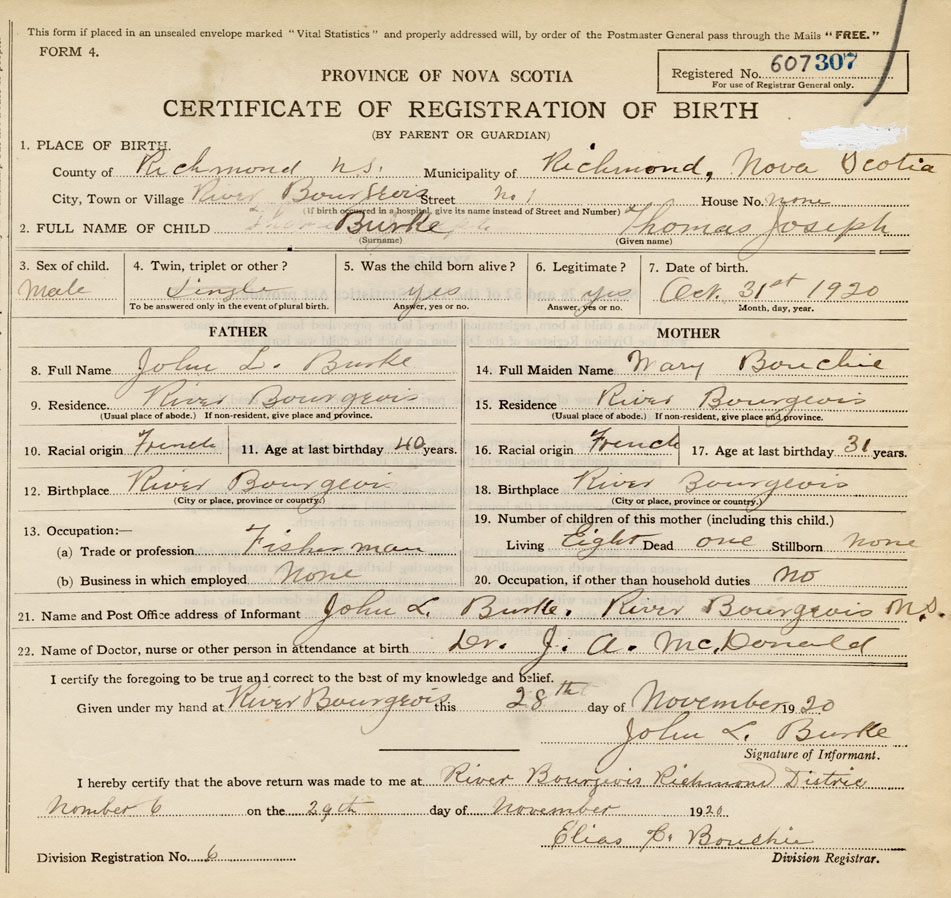 This form if placed in an unsealed envelope marked "Vital Statistics" and properly addressed will, by order of the Postmaster General pass through the Mails "FREE."
FORM 4.
Registered No. 607307
For use of Registrar General only.
PROVINCE OF NOVA SCOTIA
CERTIFICATE OF REGISTRATION OF BIRTH
(BY PARENT OR GUARDIAN)
1. PLACE OF BIRTH.
County of Richmond N.S. Municipality of Richmond, Nova Scotia
City, Town or Village River Bourgeois Street No 1 House No. none
(If birth occurred in a hospital, give its name instead of Street and Number)
2. FULL NAME OF CHILD Burke Thomas Joseph
(Surname) (Given name)
3. Sex of child. 4. Twin, triplet or other? 5. Was the child born alive? 6. Legitimate? 7. Date of birth.
Male Single yes yes Oct. 31st 1920
To be answered only in the event of plural birth. Answer, yes or no. Answer, yes or no. Month, day, year.
FATHER MOTHER
8. Full Name John L. Burke 14. Full Maiden Name Mary Bouchie
9. Residence River Bourgeois 15. Residence River Bourgeois
(Usual place of abode.) If non-resident, give place and province. (Usual place of abode.) If non-resident, give place and province.
10. Racial origin French 11. Age at last birthday 40 years. 16. Racial origin French 17. Age at last birthday 31 years.
12. Birthplace River Bourgeois 18. Birthplace River Bourgeois
(City or place, province or country.) (City or place, province or country.)
13. Occupation:— 19. Number of children of this mother (including this child.)
(a) Trade or profession Fisherman Living Eight Dead one Stillborn none
(b) Business in which employed None 20. Occupation, if other than household duties no
21. Name and Post Office address of Informant John L. Burke. River Bourgeois N.S.
22. Name of Doctor, nurse or other person in attendance at birth Dr. J. A. McDonald
I certify the foregoing to be true and correct to the best of my knowledge and belief.
Given under my hand at River Bourgeois this 28th day of November 1920
John L. Burke
Signature of Informant.
I hereby certify that the above return was made to me at River Bourgeois Richmond District
Nomber 6 on the 29th day of November 1920
Elias C. Bouchie
Division Registration No. 6 Division Registrar.